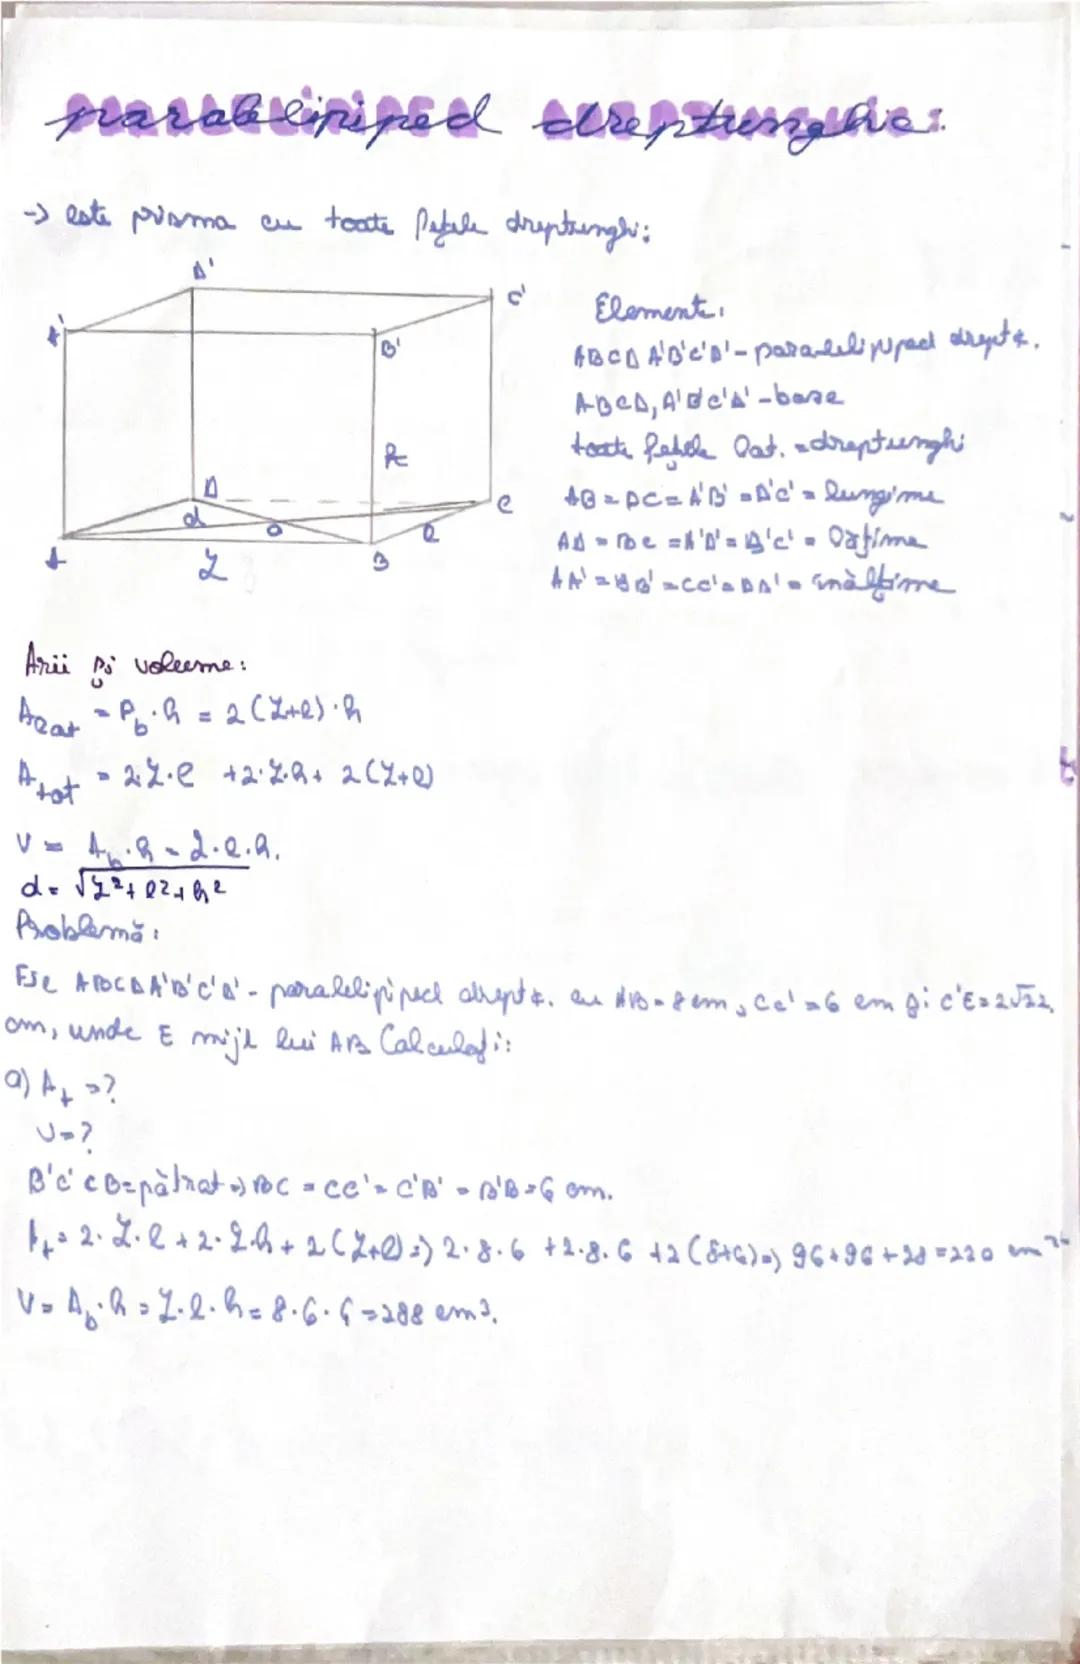 paralelipiped dreptunghic:
-> este prisma cu toate fețele dreptunghi:
D'
C'
A'
B'
h
D
d
O
C
l
A
L
B
Elemente:
ABCD A'B'C'D' - paralelipiped drept.
ABCD, A'B'C'D' - baze
toate fețele lat. = dreptunghi
AB = DC = A'B' = D'C' = lungime
AD = BC = A'D' = B'C' = lățime
AA' = BB' = CC' = DD' = înălțime
Arii și volume:
Alat = Pb·h = 2(L+l)·h
Atot = 2·L·l + 2·L·h + 2(L+l)
V = Ab·h = L·l·h.
d = √L²+l²+h²
Problemă:
Fie ABCDA'B'C'D' - paralelipiped drept. cu AB = 8 cm, CC' = 6 cm și C'E = 2√22
cm, unde E mijl lui AB Calculați:
a) At = ?
V = ?
B'C'CB = pătrat => BC = CC' = C'B' = B'B = 6 cm.
At = 2·L·l + 2·L·h + 2(L+l) => 2·8·6 + 2·8·6 + 2(8+6) => 96+96+28 = 220 cm²
V = Ab·h = L·l·h = 8·6·6 = 288 cm³.